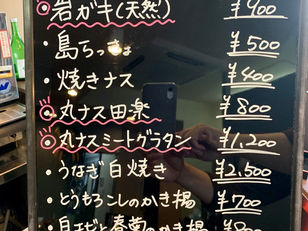 ◎岩ガキ(天然) ¥900
・島らっきょ ¥500
・焼きナス ¥400
◎丸ナス田楽 ¥800
◎丸ナスミートグラタン ¥1,200
・うなぎ白焼き ¥2,500
・とうもろこしのかき揚 ¥700
と春菊のかき揚